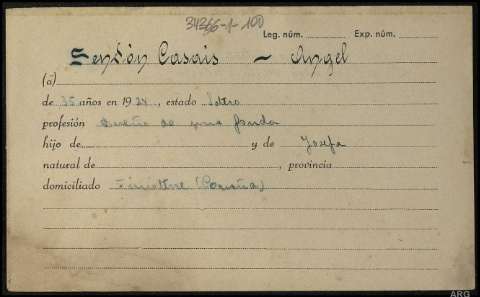 34366-1-100
Leg. núm. Exp. núm.
Sendón Casais - Angel
(a)
de 35 años en 1924, estado Soltro
profesión dueño de una fonda
hijo de y de Josefa
natural de , provincia
domiciliado (Coruña)
ARG